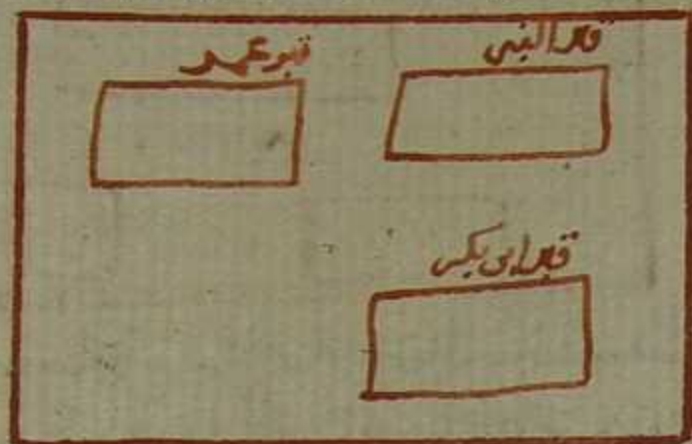 قبر النبي
قبر عمر
قبر ابى بكر